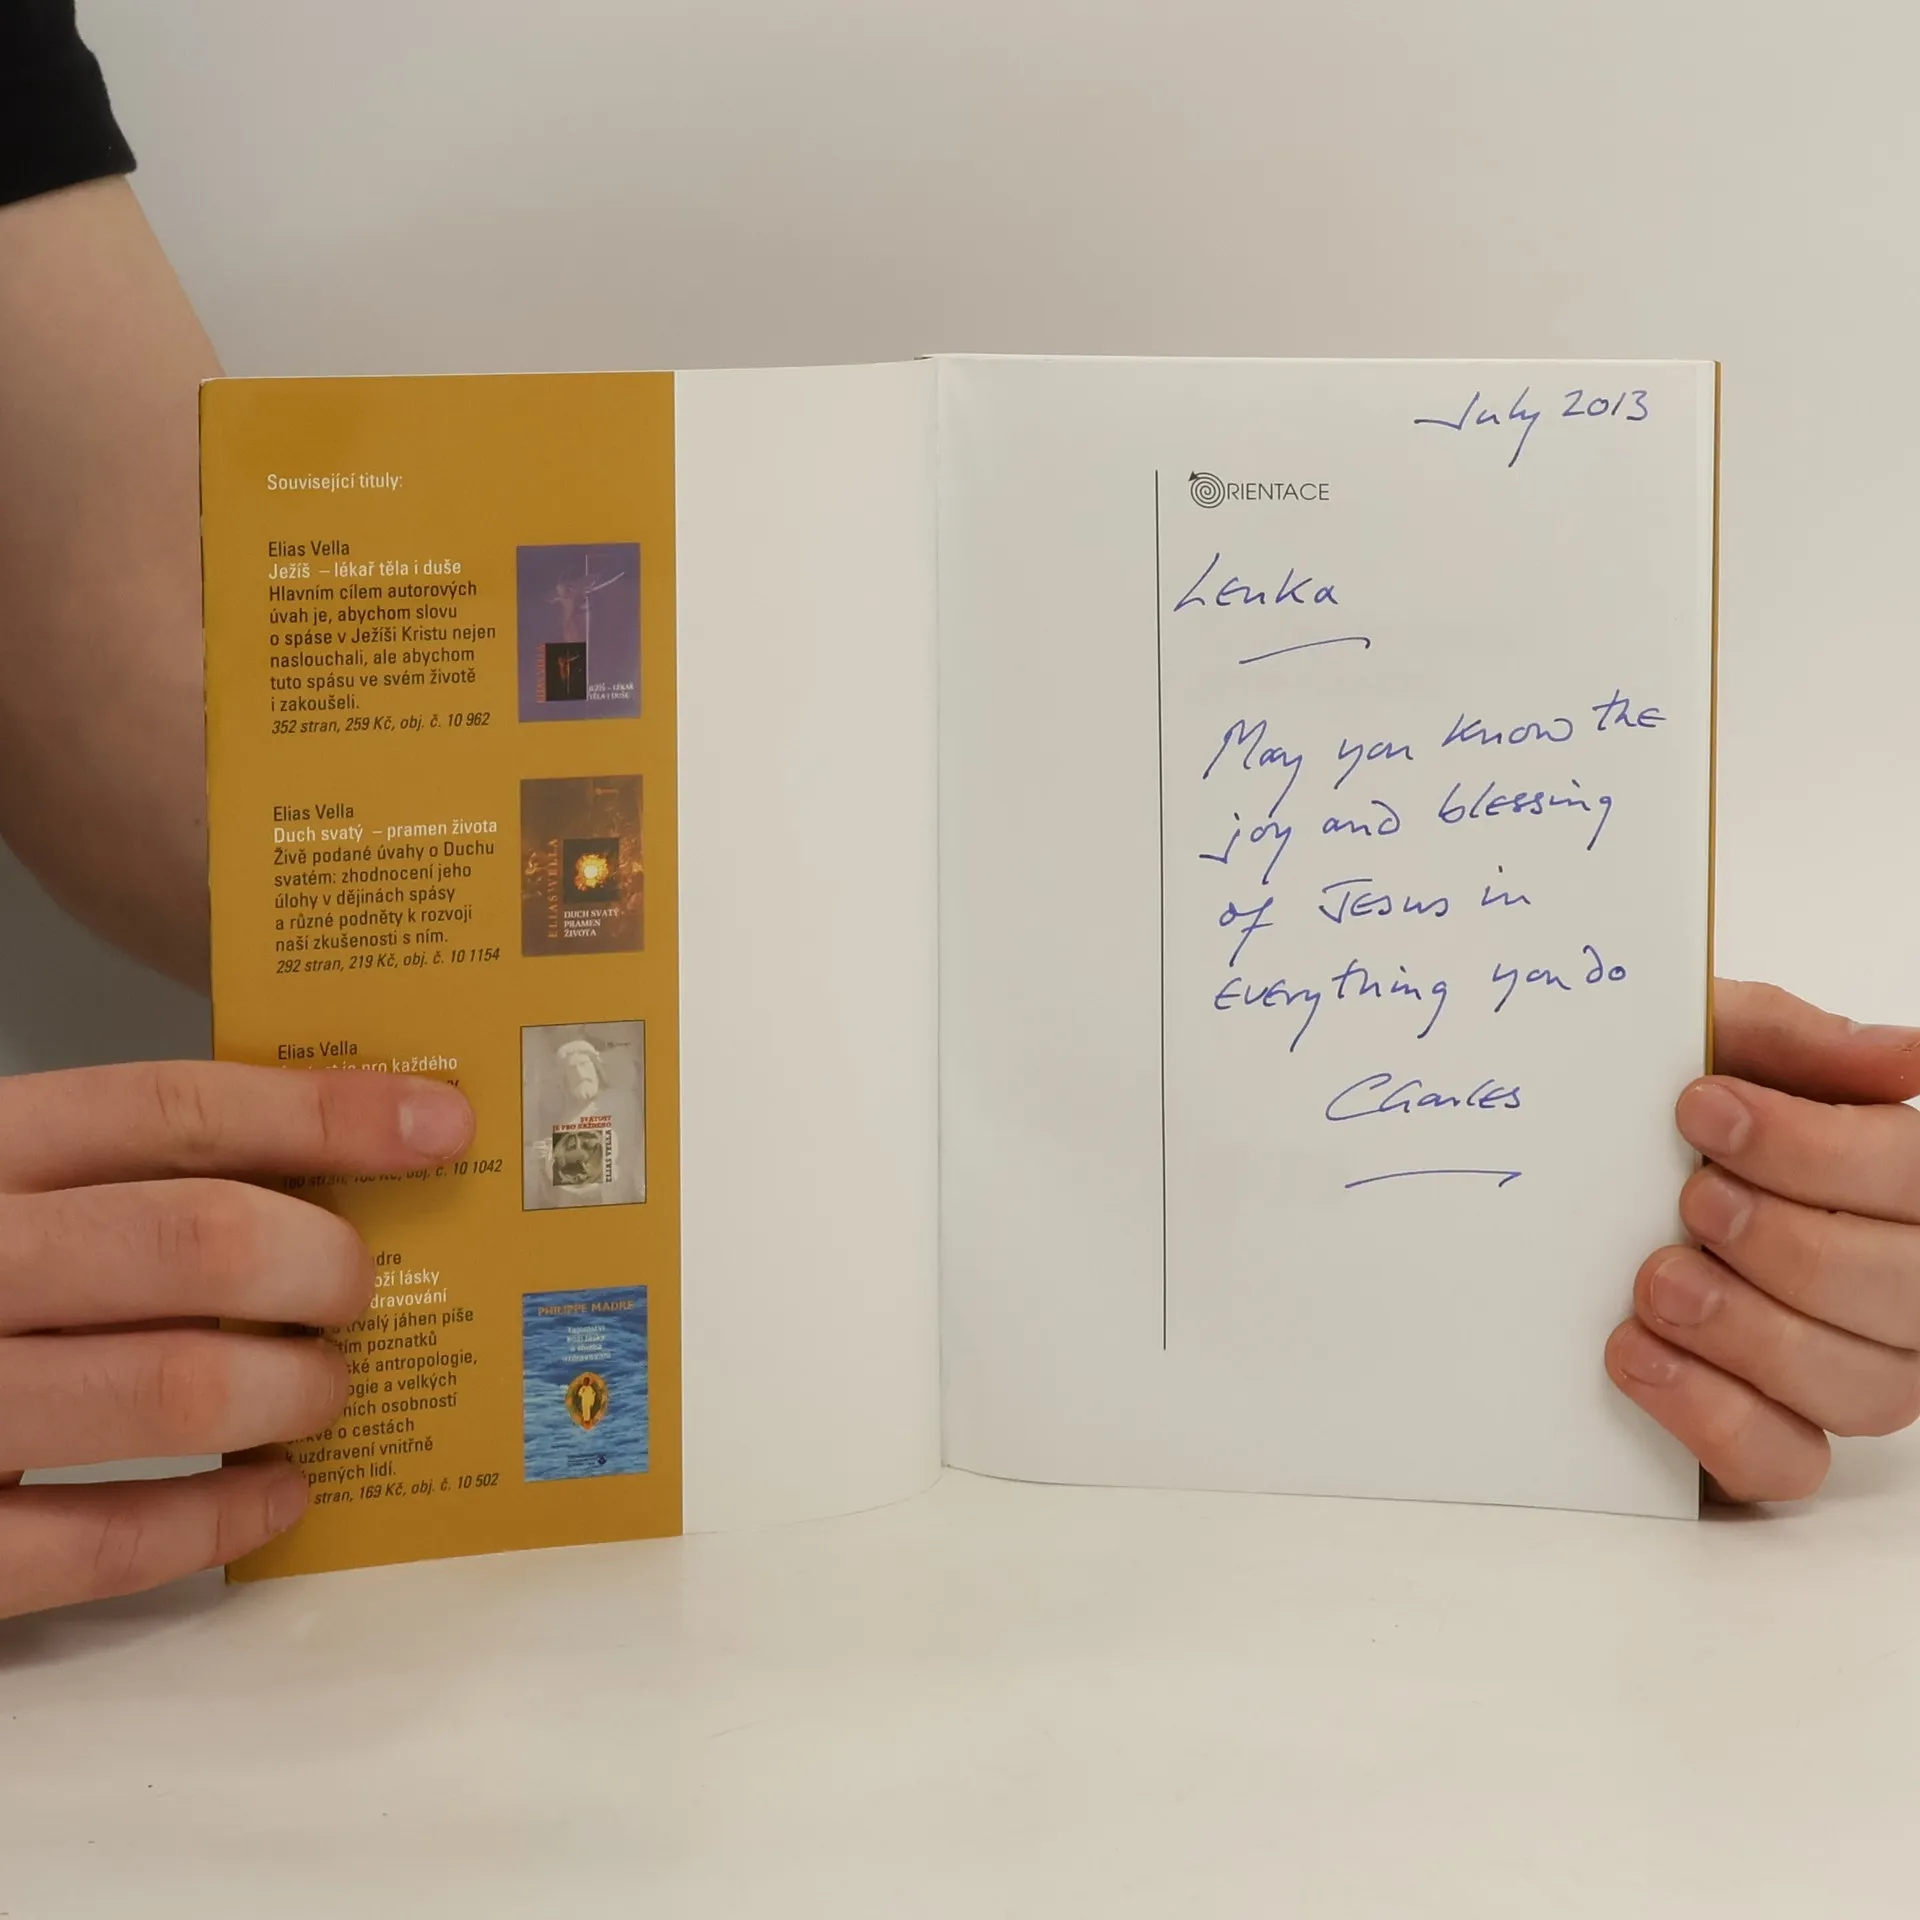 Související tituly:
Elias Vella
Ježíš – lékař těla i duše
Hlavním cílem autorových
úvah je, abychom slovu
o spáse v Ježíši Kristu nejen
naslouchali, ale abychom
tuto spásu ve svém životě
i zakoušeli.
352 stran, 259 Kč, obj. č. 10 962
ELIAS VELLA
JEŽÍŠ – LÉKAŘ
TĚLA I DUŠE
Elias Vella
Duch svatý – pramen života
Živě podané úvahy o Duchu
svatém: zhodnocení jeho
úlohy v dějinách spásy
a různé podněty k rozvoji
naší zkušenosti s ním.
292 stran, 219 Kč, obj. č. 10 1154
ELIAS VELLA
DUCH SVATÝ –
PRAMEN
ŽIVOTA
Elias Vella
pro každého
obj. č. 10 1042
SVATOST
JE PRO KAŽDÉHO
ELIAS VELLA
dre
oží lásky
dravování
trvalý jáhen píše
tím poznatků
ké antropologie,
ogie a velkých
ních osobností
o cestách
k uzdravení vnitřně
pených lidí.
stran, 169 Kč, obj. č. 10 502
PHILIPPE MADRE
Tajemství
Boží lásky
a služba
uzdravování
July 2013
ORIENTACE
Lenka
May you know the
joy and blessing
of Jesus in
everything you do
Charles